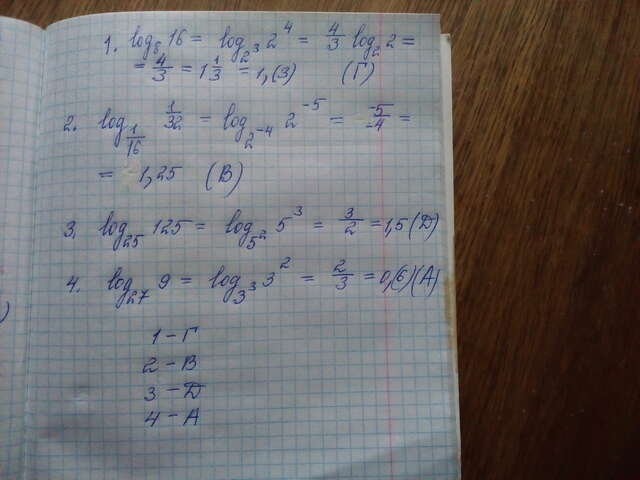 1. log₈ 16 = log₂³ 2⁴ = 4/3 log₂ 2 =
= 4/3 = 1 1/3 = 1,(3) (Г)
2. log_{1/16} 1/32 = log_{2^{-4}} 2^{-5} = -5/-4 =
= 1,25 (В)
3. log₂₅ 125 = log_{5²} 5³ = 3/2 = 1,5 (Д)
4. log₂₇ 9 = log_{3³} 3² = 2/3 = 0,(6) (А)
1 – Г
2 – В
3 – Д
4 – А